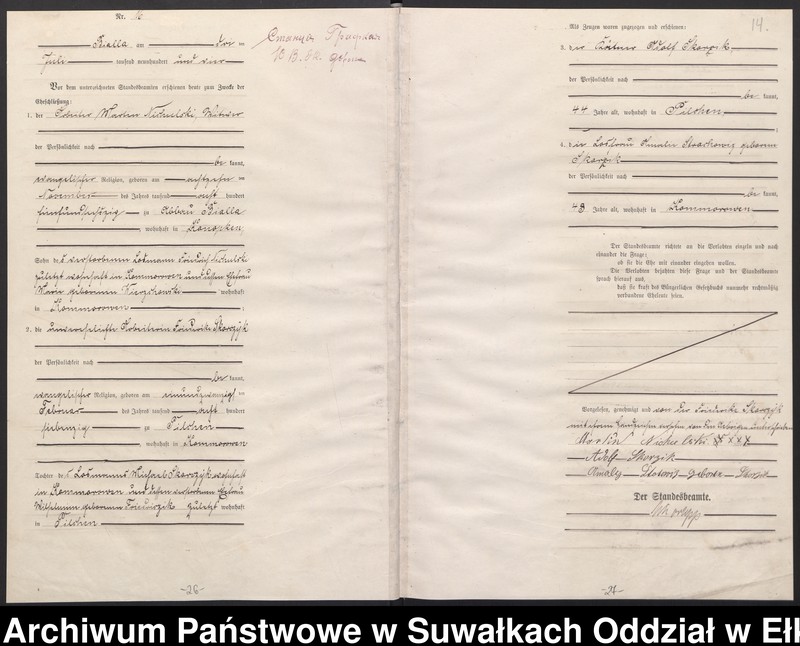 Nr. 10
Bialla am drei ten
Juli tausend neunhundert und vier
Vor dem unterzeichneten Standesbeamten erschienen heute zum Zwecke der
Eheschließung:
1. der Martin Nichulski, Witwer
der Persönlichkeit nach
be kannt,
evangelischer Religion, geboren am achtzehn ten
November des Jahres tausend acht hundert
fünfundsechszig zu Abbau Bialla
, wohnhaft in Konopken
Sohn des verstorbenen Losmann Friedrich Nichulski
zuletzt wohnhaft in Kommorowen und dessen Ehefrau
Marie geborenen wohnhaft
in Kommorowen ;
2. die unverehelichte Arbeiterin Friederike Skorzyk
der Persönlichkeit nach
be kannt,
evangelischer Religion, geboren am neunundzwanzigsten
Februar des Jahres tausend acht hundert
siebenzig zu Pilchen
, wohnhaft in Kommorowen
Tochter des Losmanns Michael Skorzyk wohnhaft
in Kommorowen und dessen verstorbenen Ehefrau
Wilhelmine geborenen zuletzt wohnhaft
in Pilchen
-26-
14.
Als Zeugen waren zugezogen und erschienen:
3. der Kätner Adolf Skorzik
der Persönlichkeit nach
be kannt,
44 Jahre alt, wohnhaft in Pilchen
;
4. die Losfrau Amalie geborene
Skorzik
der Persönlichkeit nach
be kannt,
48 Jahre alt, wohnhaft in Kommorowen
Der Standesbeamte richtete an die Verlobten einzeln und nach
einander die Frage:
ob sie die Ehe mit einander eingehen wollen.
Die Verlobten bejahten diese Frage und der Standesbeamte
sprach hierauf aus,
daß sie kraft des Bürgerlichen Gesetzbuchs nunmehr rechtmäßig
verbundene Eheleute seien.
Vorgelesen, genehmigt und von der Friederike Skorzyk
mit ihrem Handzeichen versehen von den Uebrigen unterschrieben
Martin Nichulski xxx
Adolf Skorzik
Amaly geborene Skorzik
Der Standesbeamte.
-27-
Archiwum Państwowe w Suwałkach Oddział w Ełk